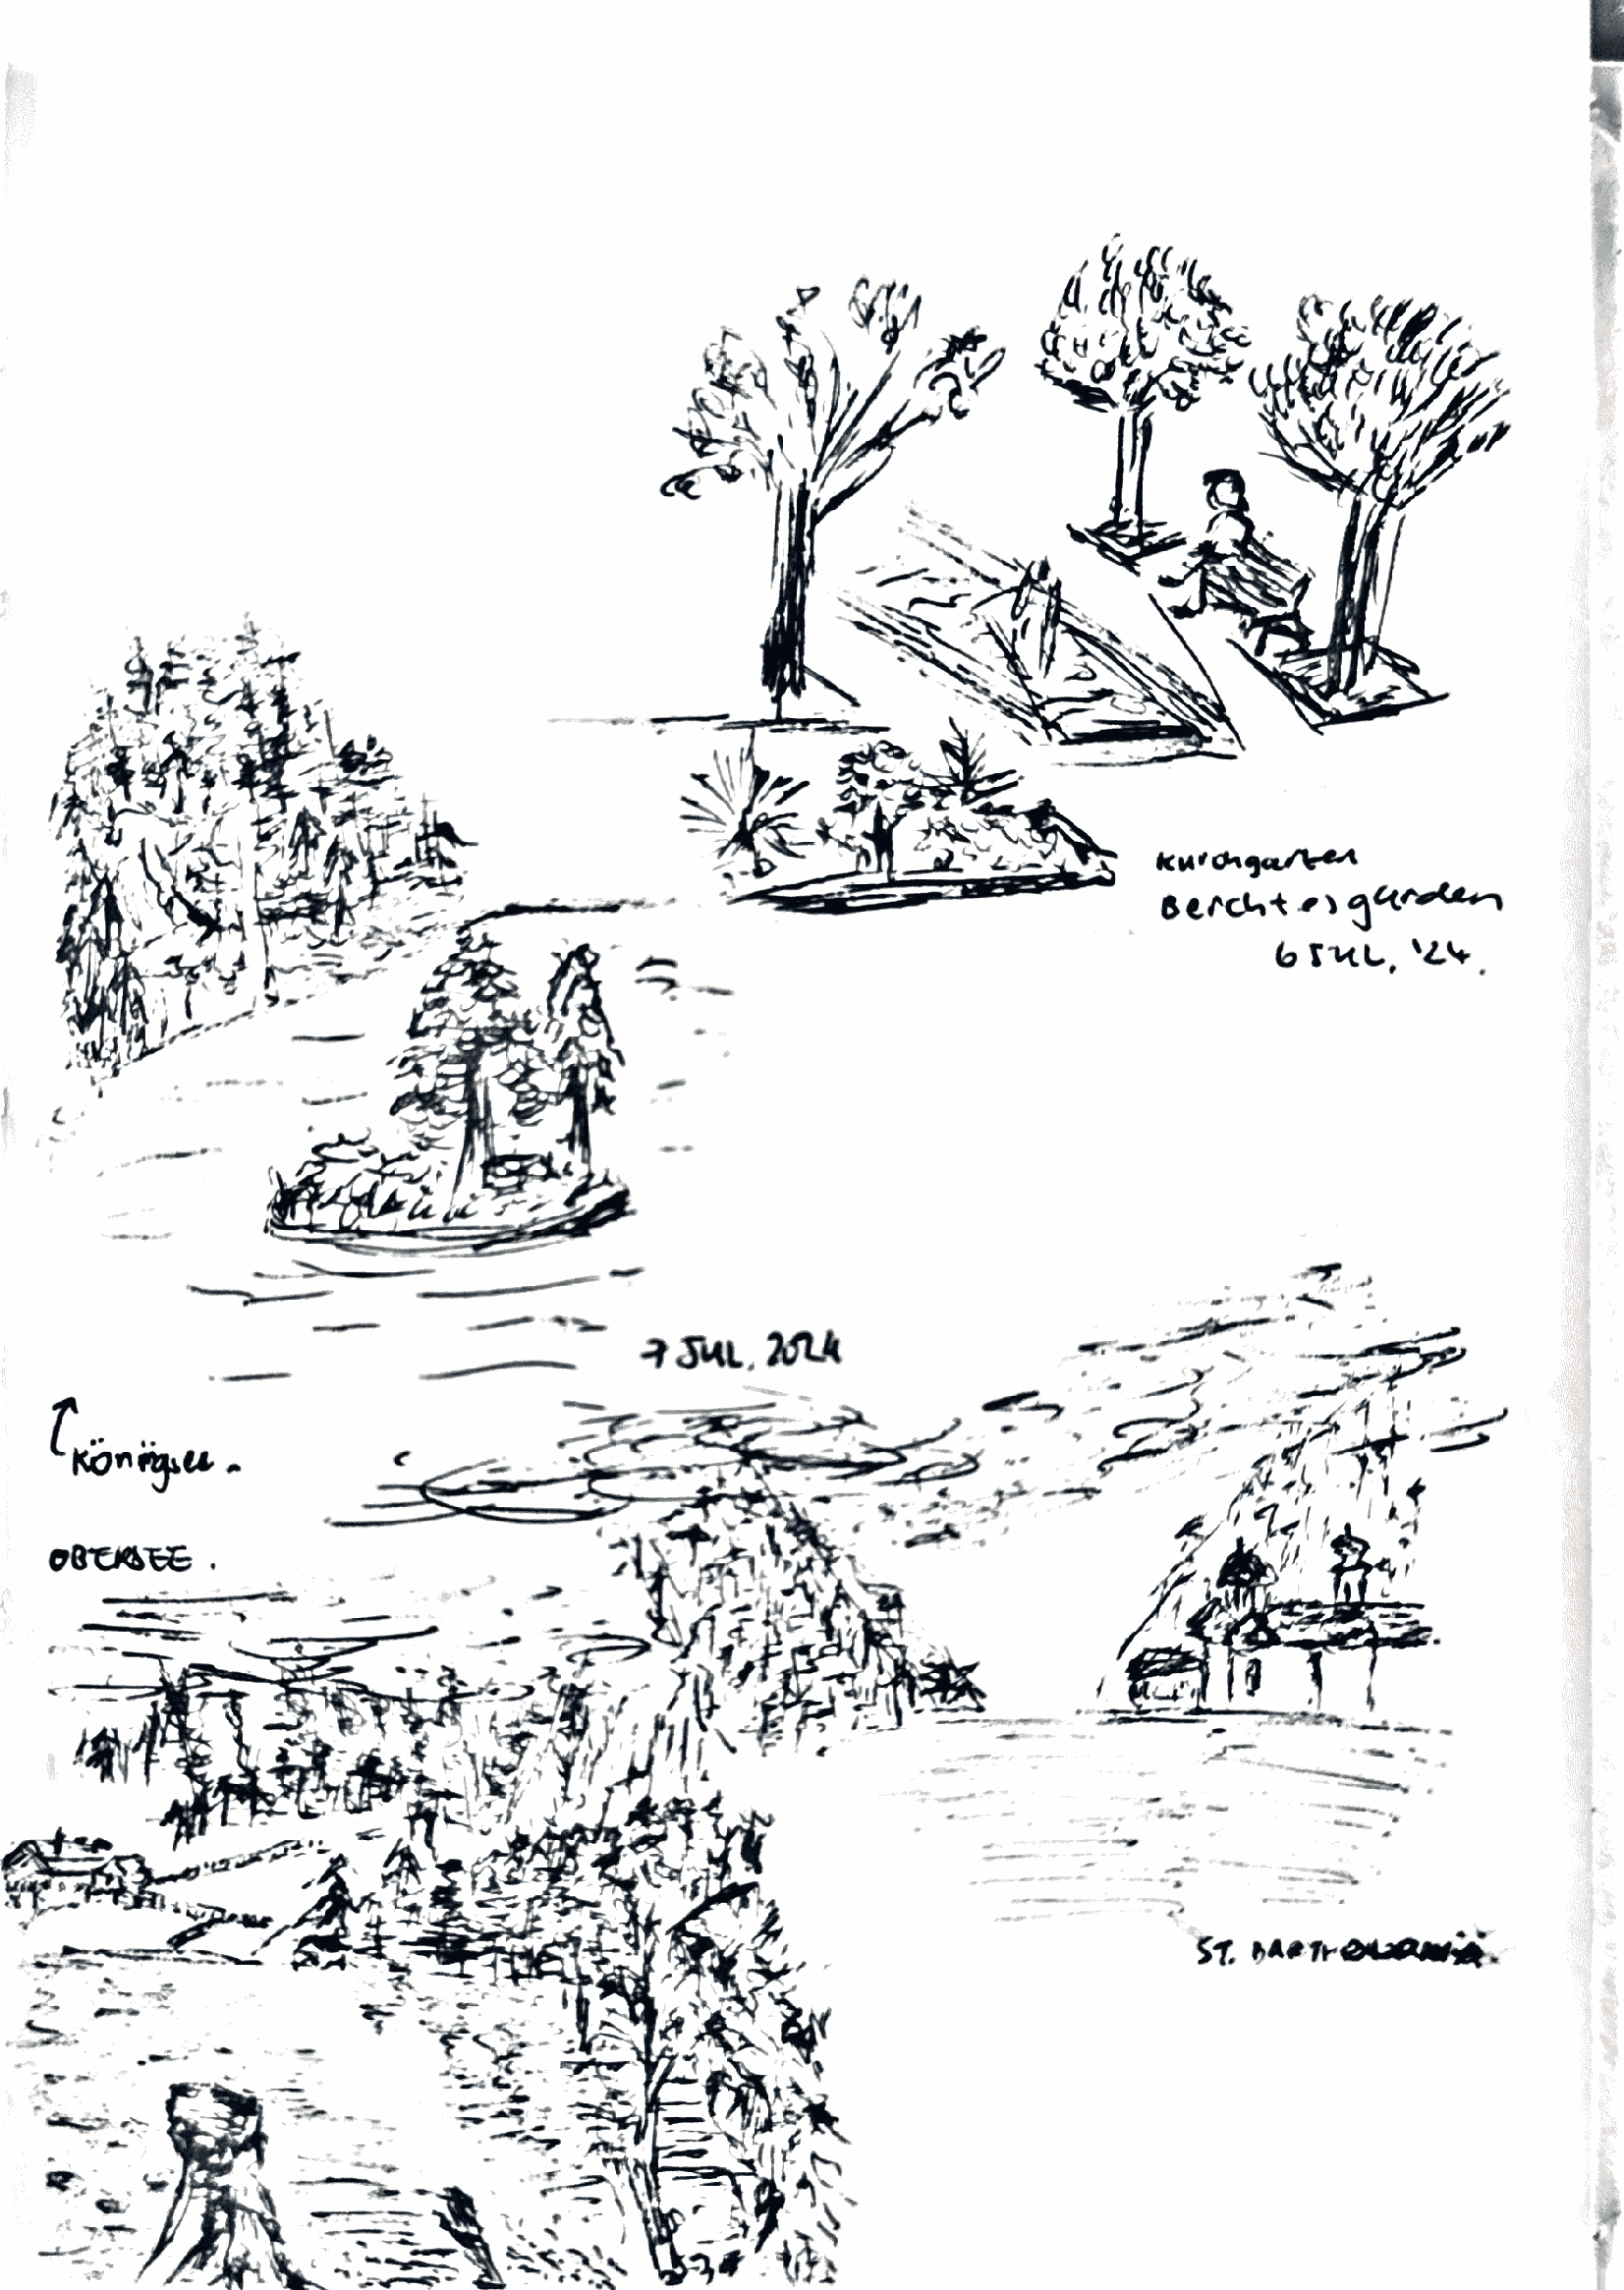 Kurchgarten
Berchtesgarden
6 JUL, '24.
7 JUL, 2024
Königsee.
OBERSEE.
ST. BARTHOLOMÄ.